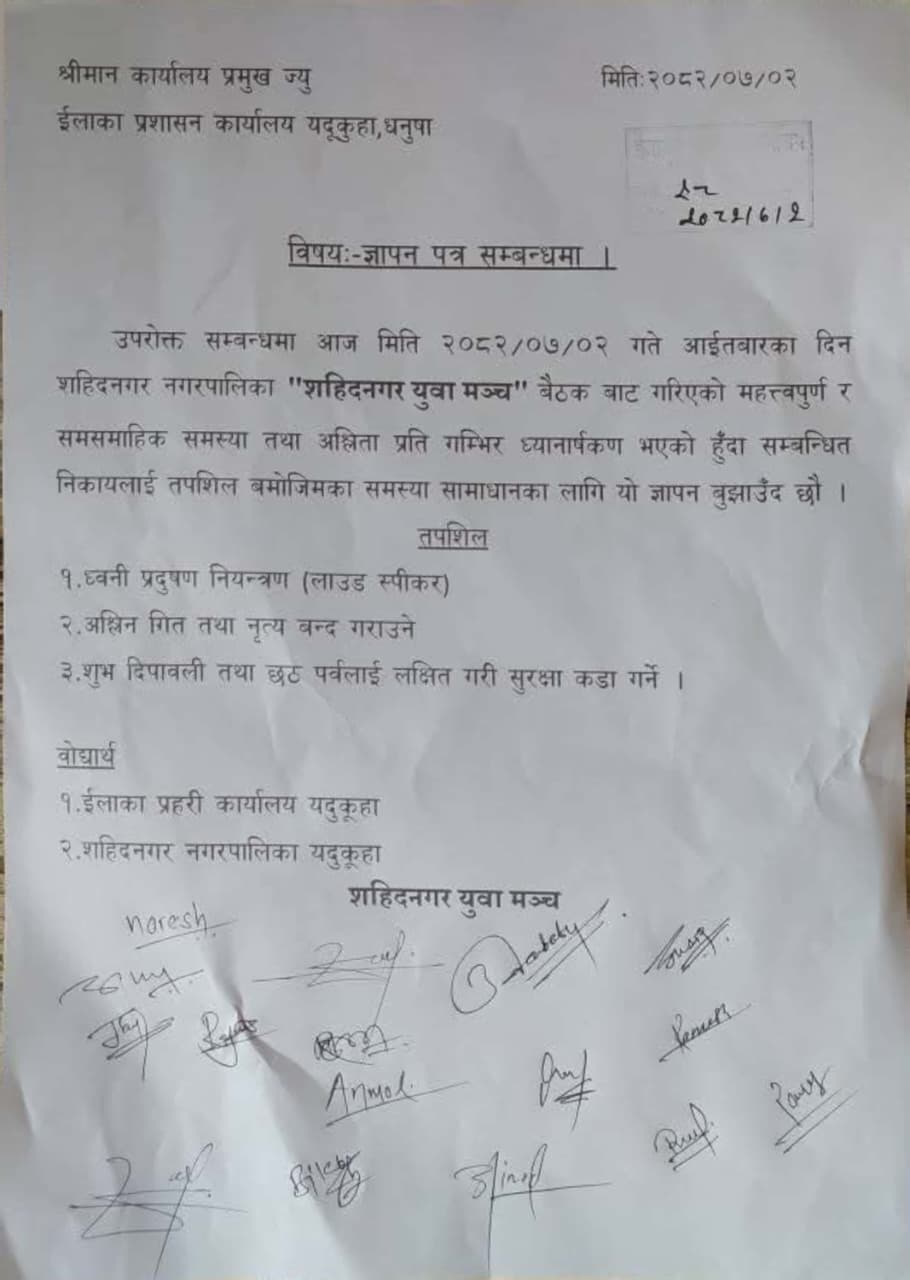 श्रीमान कार्यालय प्रमुख ज्यु
मितिः२०८२/०७/०२
ईलाका प्रशासन कार्यालय यदूकुहा,धनुषा
विषयः-ज्ञापन पत्र सम्बन्धमा ।
उपरोक्त सम्बन्धमा आज मिति २०८२/०७/०२ गते आईतबारका दिन
शहिदनगर नगरपालिका "शहिदनगर युवा मञ्च" बैठक बाट गरिएको महत्त्वपुर्ण र
समसमाहिक समस्या तथा अश्लिता प्रति गम्भिर ध्यानार्षकण भएको हुँदा सम्बन्धित
निकायलाई तपशिल बमोजिमका समस्या सामाधानका लागि यो ज्ञापन बुझाउँद छौ ।
तपशिल
१.ध्वनी प्रदुषण नियन्त्रण (लाउड स्पीकर)
२.अश्लिन गित तथा नृत्य बन्द गराउने
३.शुभ दिपावली तथा छठ पर्वलाई लक्षित गरी सुरक्षा कडा गर्ने ।
वोद्यार्थ
१.ईलाका प्रहरी कार्यालय यदुकूहा
२.शहिदनगर नगरपालिका यदुकूहा
शहिदनगर युवा मञ्च
noresh
Anmol